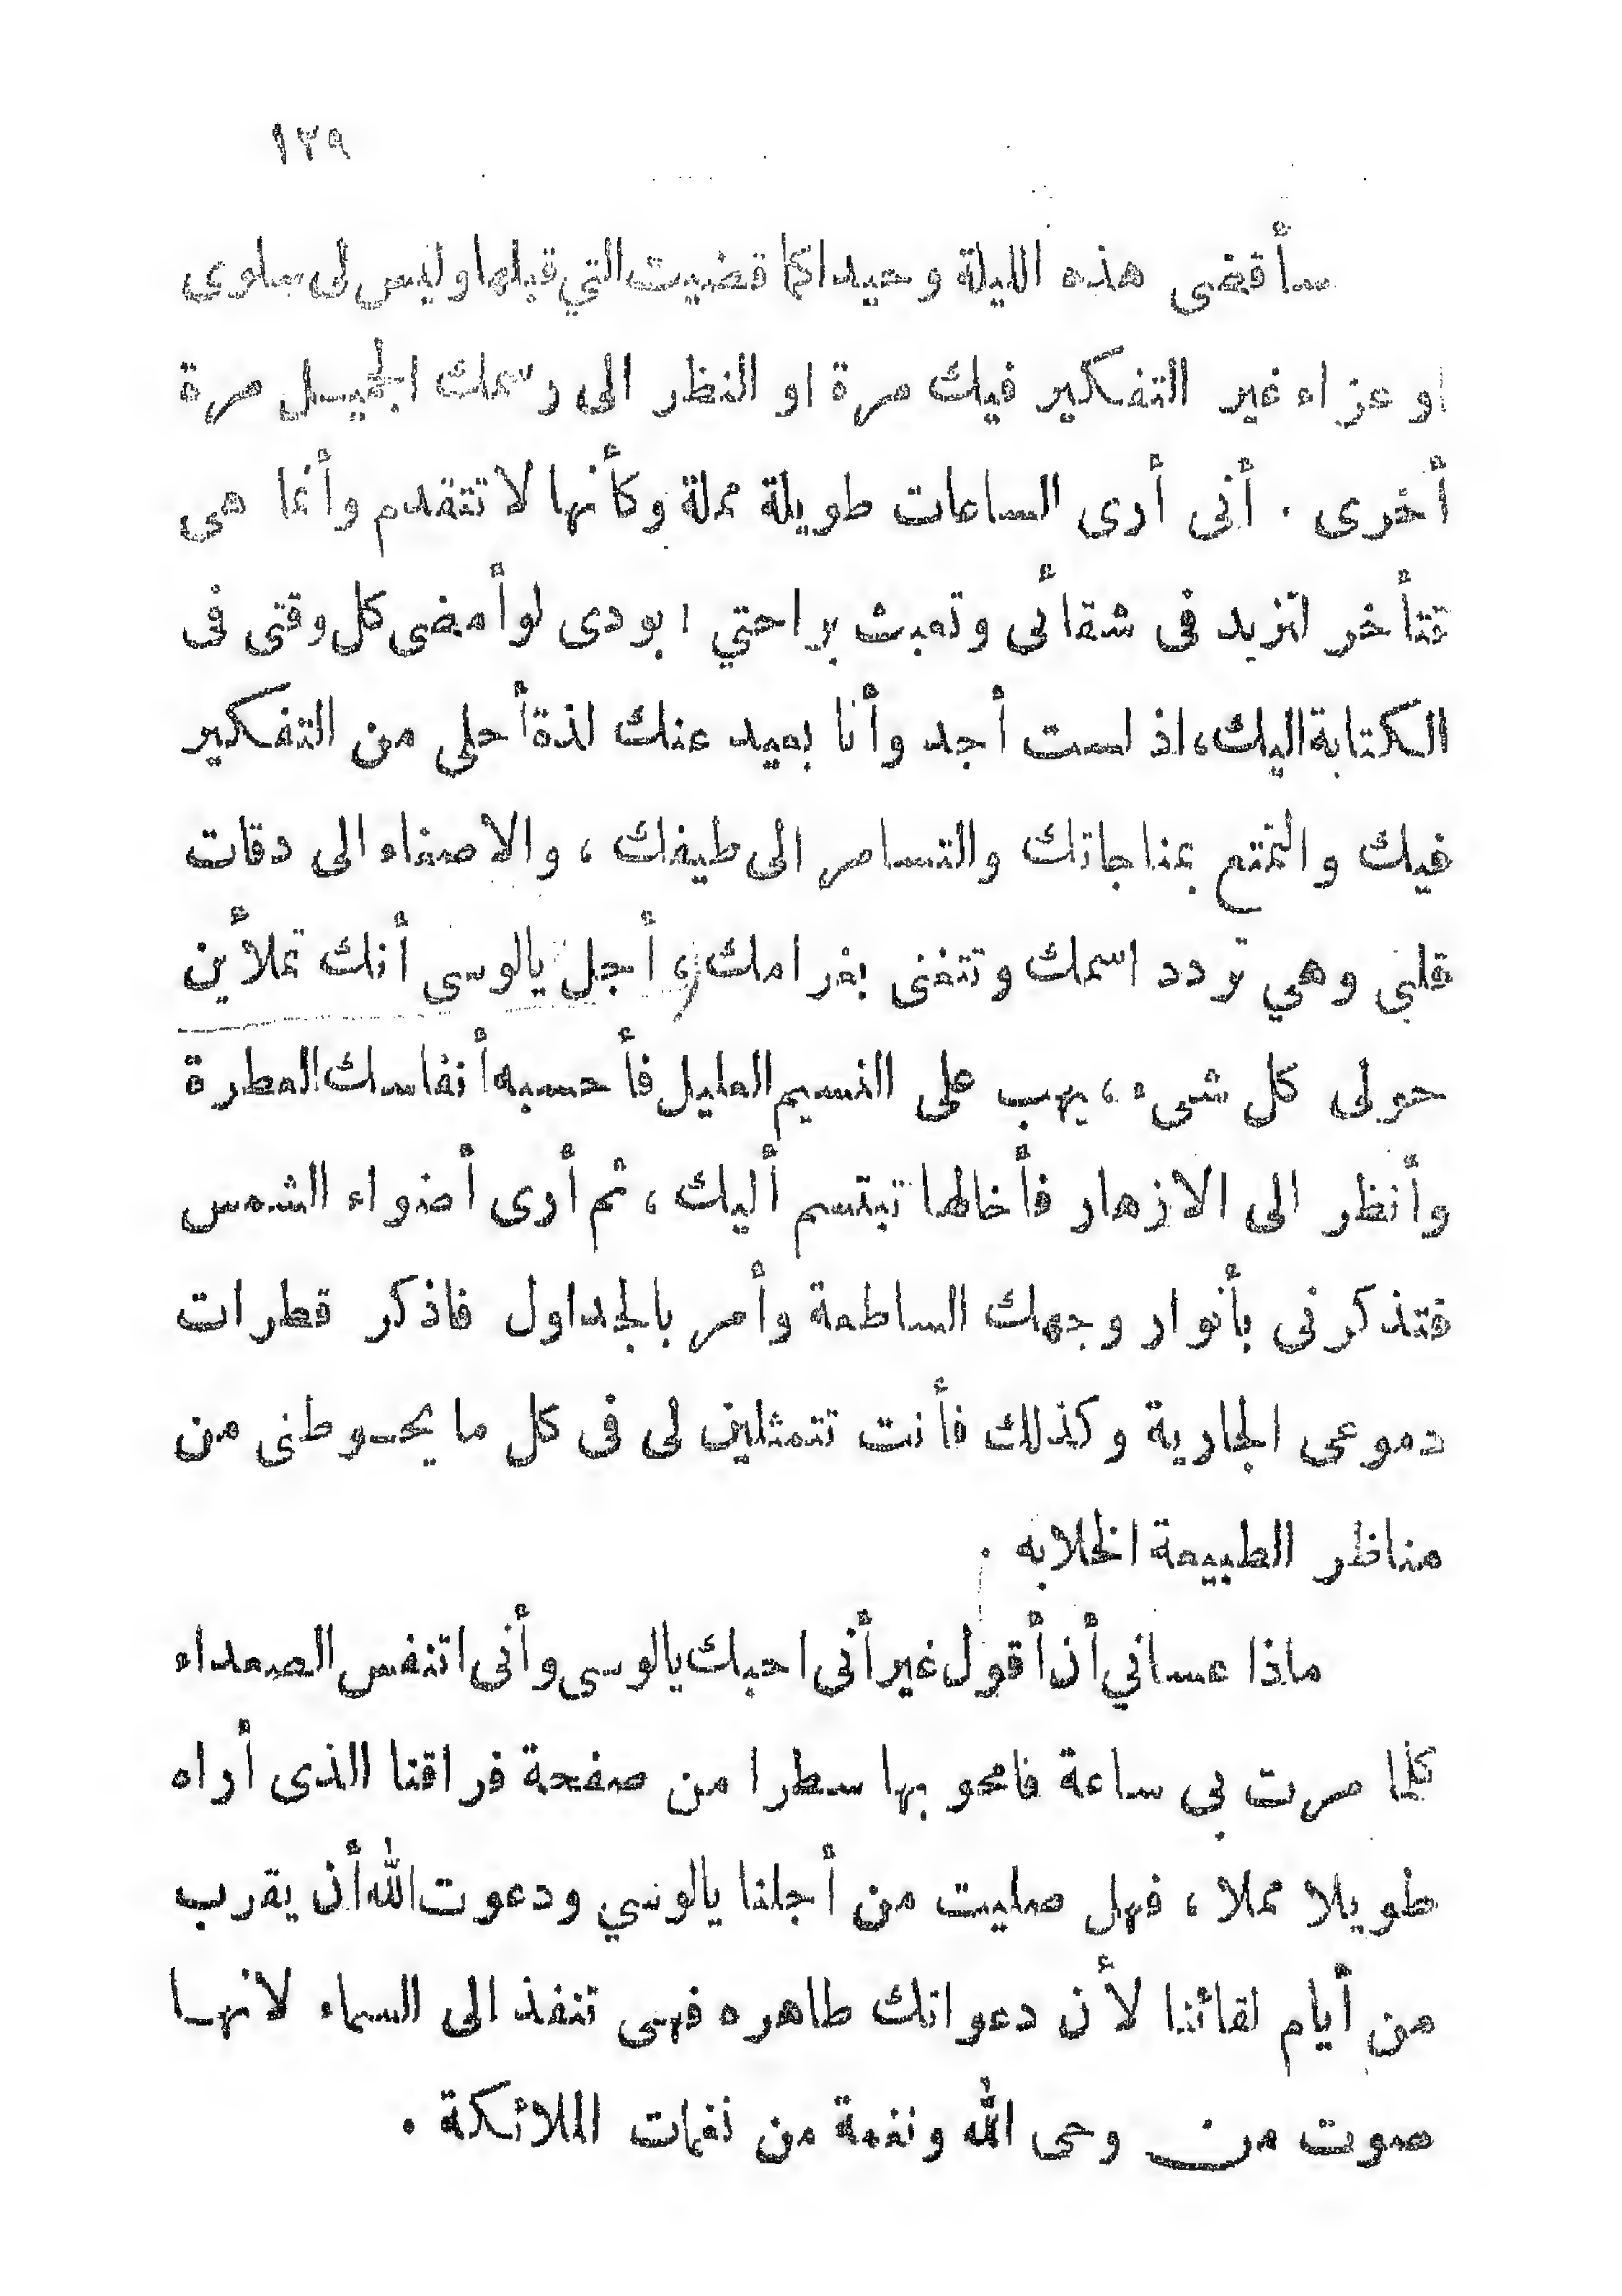 ١٢٩
سأقضى هذه الليلة وحيدا كما قضيت التي قبلها وليس لى سلوى
او عزاء غير التفكير فيك مرة او النظر الى رسمك الجميل مرة
أخرى . أنى أرى الساعات طويلة مملة وكأنها لا تتقدم وأنما هى
تتأخر لتزيد فى شقائى وتعبث براحتي ؛ بودى لو أمضى كل وقتى فى
الكتابة اليك، اذ لست أجد وأنا بعيد عنك لذة أحلى من التفكير
فيك والتمتع بمناجاتك والتسامر الى طيفك ، والاصغاء الى دقات
قلبى وهي تردد اسمك وتتغنى بغرامك ، أجل يالوسى أنك تملأين
حولى كل شىء ، يهب على النسيم العليل فأحسبه أنفاسك العطرة
وأنظر الى الازهار فأخالها تبتسم أليك ، ثم أرى أضواء الشمس
فتذكرنى بأنوار وجهك الساطعة وأمر بالجداول فاذكر قطرات
دموعى الجارية وكذلك فأنت تتمثلين لى فى كل ما يحوطنى من
مناظر الطبيعة الخلابه .
ماذا عساني أن أقول غير أنى احبك يالوسى وأنى اتنفس الصعداء
كلما مرت بي ساعة فامحو بها سطرا من صفحة فراقنا الذى أراه
طويلا مملا ، فهل صليت من أجلنا يالوسي ودعوت الله أن يقرب
من أيام لقائنا لأن دعواتك طاهره فهى تنفذ الى السماء لانها
صوت من وحى الله ونغمة من نغمات الملائكة .